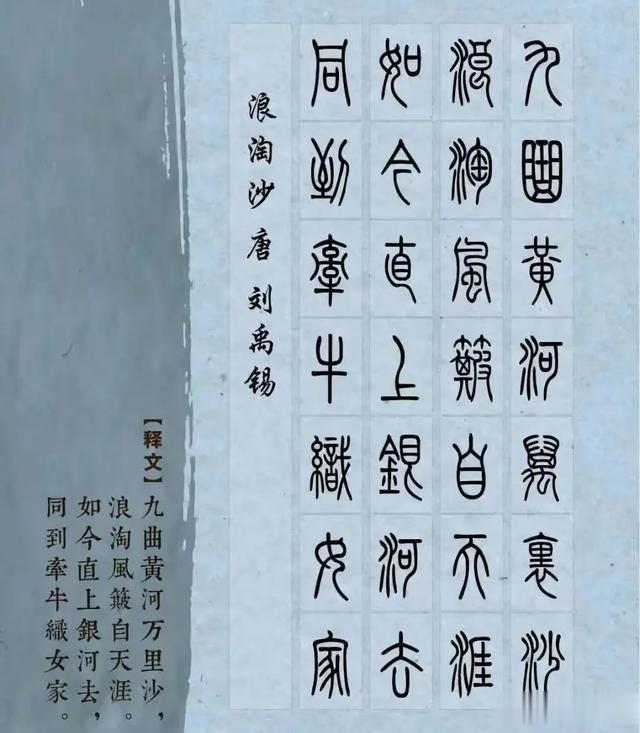 九曲黃河萬裏沙
浪淘風簸自天涯
如今直上銀河去
同到牽牛織女家
浪淘沙 唐 刘禹锡
【释文】九曲黃河万里沙，
浪淘風簸自天涯。
如今直上銀河去，
同到牽牛織女家。